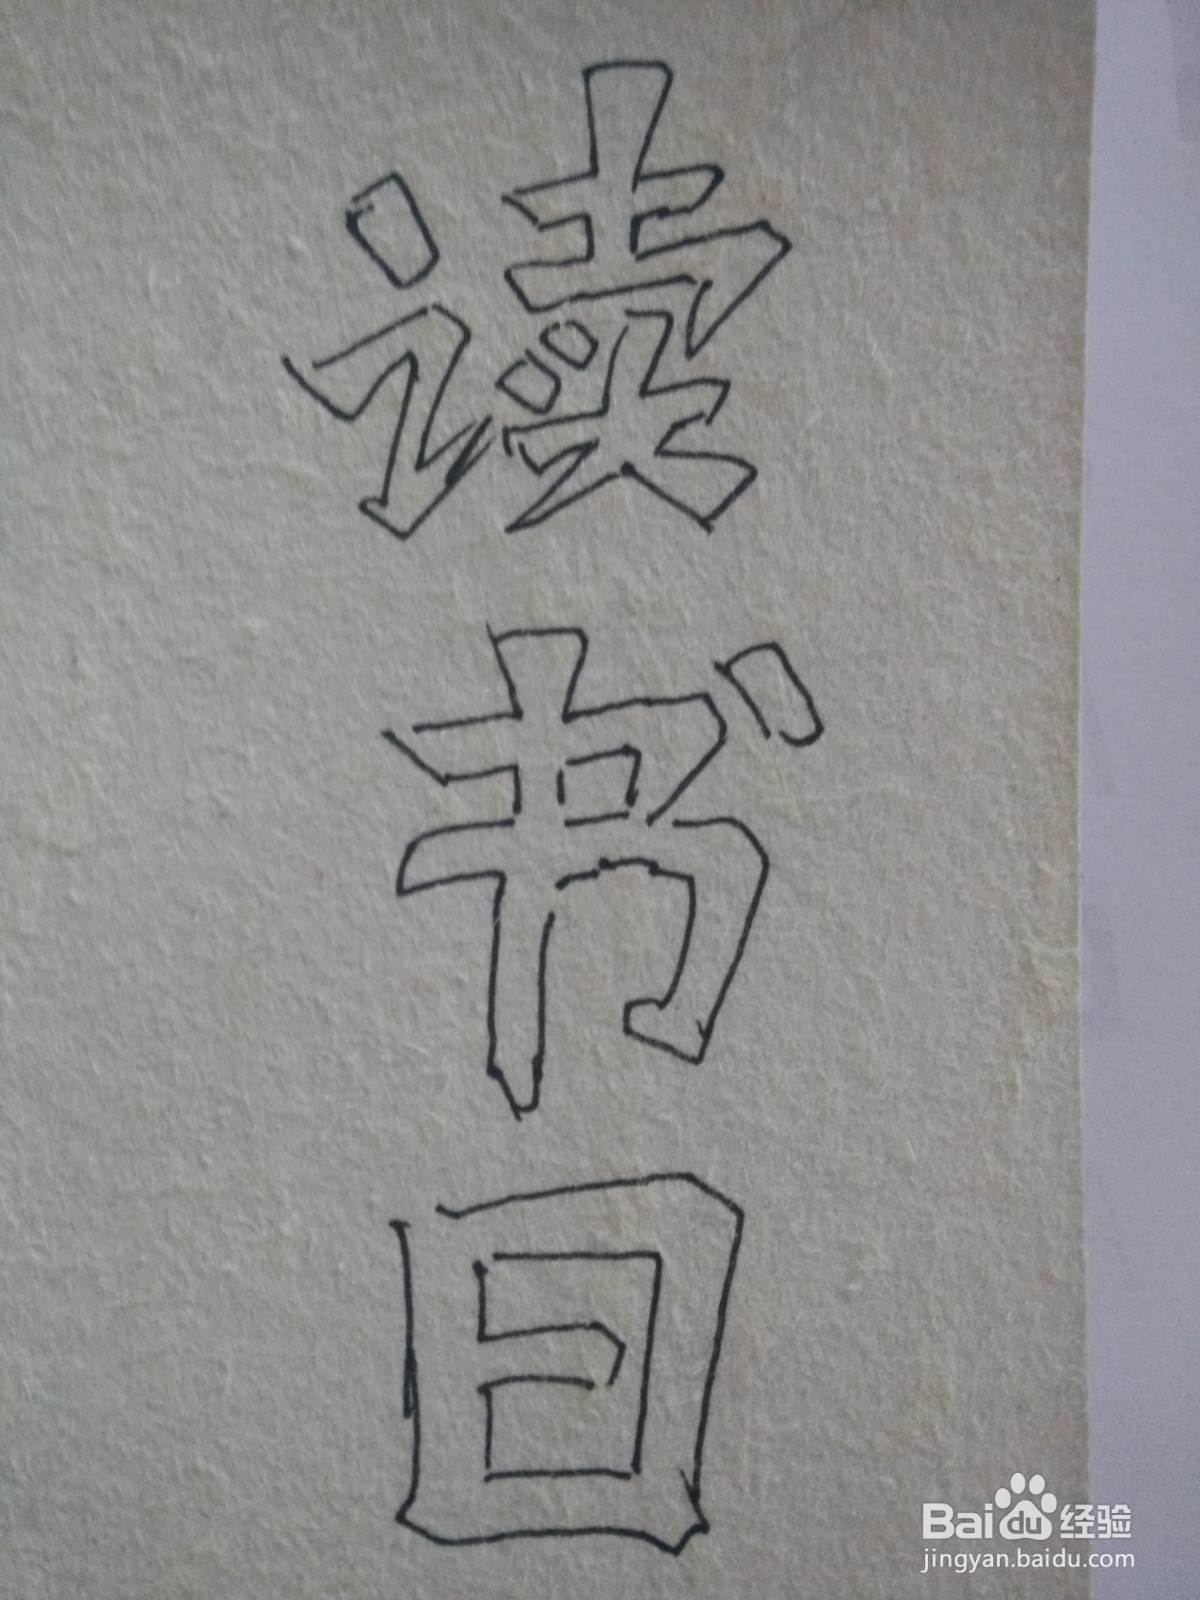 读
书
日
Baidu经验
jingyan.baidu.com